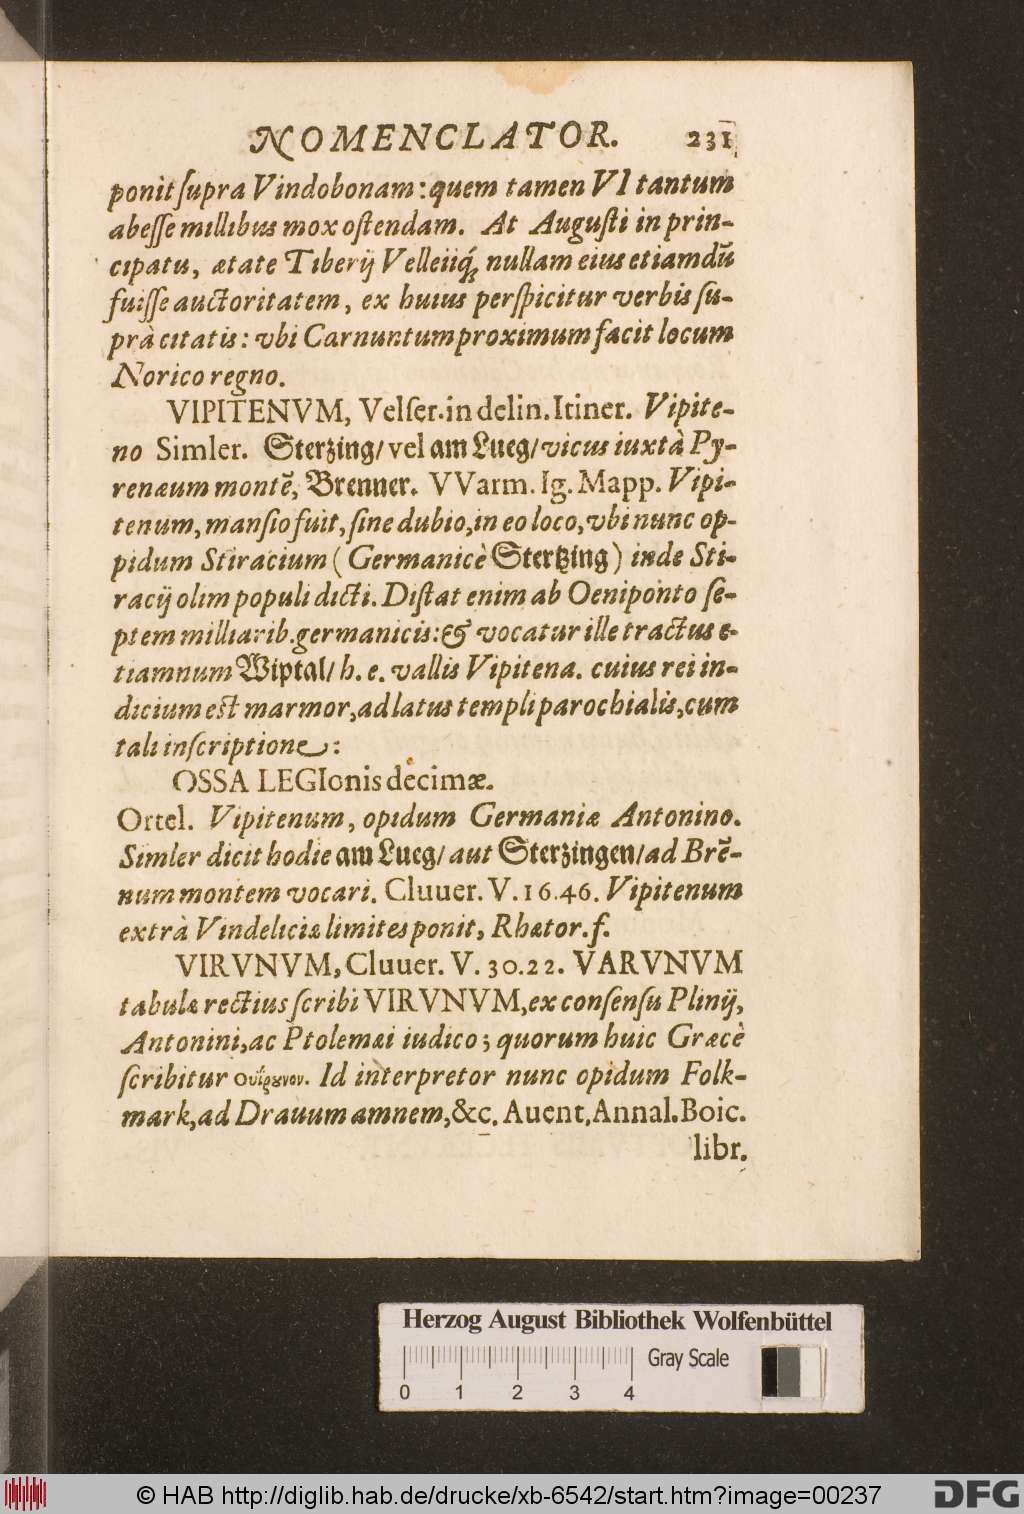 NOMENCLATOR. 231
ponit ſupra Vindobonam: quem tamen VI tantum
abeſſe millibus mox oſtendam. At Auguſti in prin-
cipatu, ætate Tiberij Velleiiq́ꝫ nullam eius etiamdũ
fuiſſe auctoritatem, ex huius perſpicitur verbis ſu-
prà citatis: vbi Carnuntum proximum facit locum
Norico regno.
VIPITENVM, Velſer. in delin. Itiner. Vipite-
no Simler. Sterzing/ vel am Lueg/ vicus iuxtà Py-
renæum montẽ, Brenner. VVarm. Ig. Mapp. Vipi-
tenum, manſio fuit, ſine dubio, in eo loco, vbi nunc op-
pidum Stiracium (Germanicè Stertzing) inde Sti-
racij olim populi dicti. Diſtat enim ab Oeniponto ſe-
ptem milliarib. germanicis: & vocatur ille tractus e-
tiamnum Wiptal/ h. e. vallis Vipitena. cuius rei in-
dicium eſt marmor, ad latus templi parochialis, cum
tali inſcriptione:
OSSA LEGIonis decimæ.
Ortel. Vipitenum, opidum Germaniæ Antonino.
Simler dicit hodie am Lueg/ aut Sterzingen/ ad Brẽ-
num montem vocari. Cluuer. V. 16. 46. Vipitenum
extrà Vindeliciæ limites ponit, Rhætor. f.
VIRVNVM, Cluuer. V. 30. 22. VARVNVM
tabulæ rectius ſcribi VIRVNVM, ex conſenſu Plinij,
Antonini, ac Ptolemæi iudico; quorum huic Græcè
ſcribitur Ουΐρȣνον. Id interpretor nunc opidum Folk-
mark, ad Drauum amnem, &c. Auent. Annal. Boic.
libr.
Herzog August Bibliothek Wolfenbüttel
Gray Scale
0 1 2 3 4
© HAB http://diglib.hab.de/drucke/xb-6542/start.htm?image=00237
DFG